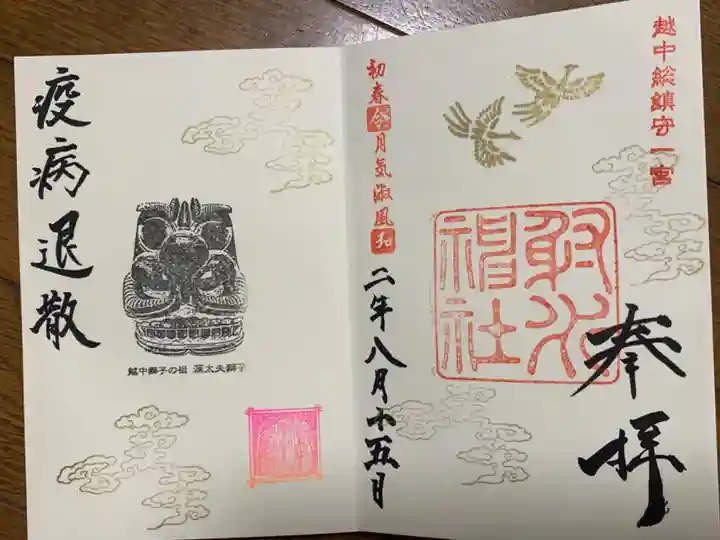 越中総鎮守一宮
奉拝
射水
神社
初春令月気淑風和
二年八月五日
越中獅子の祖 源太夫獅子
疫病退散